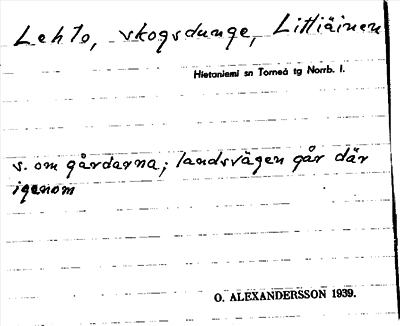 Lehto, skogsdunge, Littiäinen
Hietaniemi sn Torneå tg Norrb. l.
s. om gårdarna; landsvägen går där
igenom
O. ALEXANDERSSON 1939.